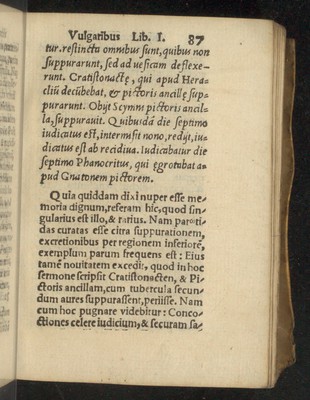 Vulgaribus Lib. I. 87
tur. restincta omnibus sunt, quibus non
suppurarunt, sed ad uesicam deflexe-
runt. Cratistonactẽ, qui apud Hera-
cliũ decũbebat, & pictoris ancillę sup-
purarunt. Obijt Scymni pictoris ancil-
la, suppurauit. Quibusdã die septimo
iudicatus est, intermisit nono, redijt, iu-
dicatus est ab recidiua. Iudicabatur die
septimo Phanocritus, qui ęgrotabat a-
pud Gnatonem pictorem.
Quia quiddam dixi nuper esse me-
moria dignum, referam hic, quod sin-
gularius est illo, & rarius. Nam paroti-
das curatas esse citra suppurationem,
excretionibus per regionem inferiorẽ,
exemplum parum frequens est: Eius
tamẽ nouitatem excedit, quod in hoc
sermone scripsit Cratistonacten, & Pi-
ctoris ancillam, cum tubercula secun-
dum aures suppurassent, perijsse. Nam
cum hoc pugnare videbitur: Conco-
ctiones celere iudicium, & securam sa-